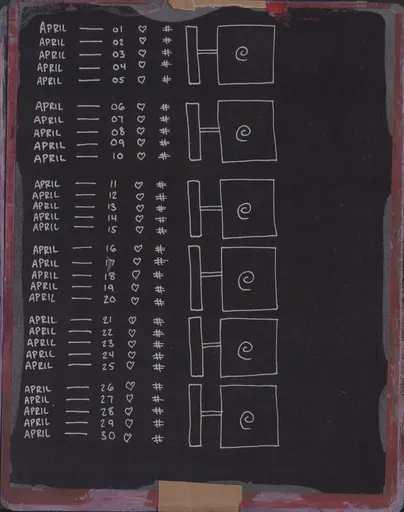 APRIL — 01 ♡ #
APRIL — 02 ♡ #
APRIL — 03 ♡ #
APRIL — 04 ♡ #
APRIL — 05 ♡ #
APRIL — 06 ♡ #
APRIL — 07 ♡ #
APRIL — 08 ♡ #
APRIL — 09 ♡ #
APRIL — 10 ♡ #
APRIL — 11 ♡ #
APRIL — 12 ♡ #
APRIL — 13 ♡ #
APRIL — 14 ♡ #
APRIL — 15 ♡ #
APRIL — 16 ♡ #
APRIL — 17 ♡ #
APRIL — 18 ♡ #
APRIL — 19 ♡ #
APRIL — 20 ♡ #
APRIL — 21 ♡ #
APRIL — 22 ♡ #
APRIL — 23 ♡ #
APRIL — 24 ♡ #
APRIL — 25 ♡ #
APRIL — 26 ♡ #
APRIL — 27 ♡ #
APRIL — 28 ♡ #
APRIL — 29 ♡ #
APRIL — 30 ♡ #